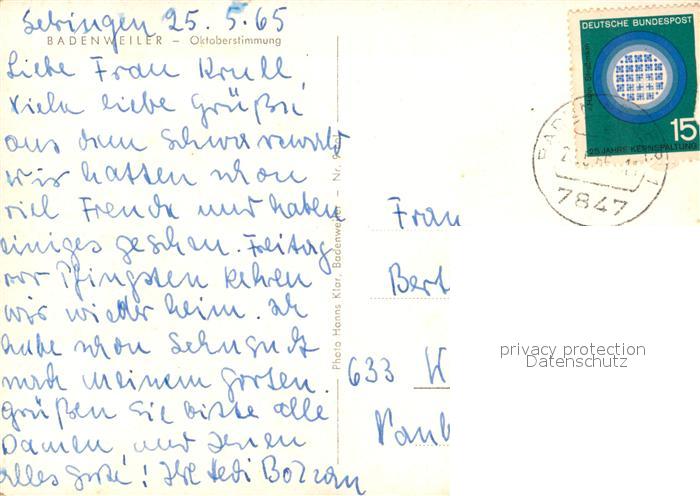 Sehringen 25. 5. 65
BADENWEILER – Oktoberstimmung
Liebe Frau Krull,
Viele liebe Grüße
aus dem Schwarzwald
wir hatten schon
viel Freude und haben
einiges gesehen. Freitag
vor Pfingsten kehren
wir wieder heim. Ich
habe schon Sehnsucht
nach meinem Garten.
Grüßen Sie bitte alle
Damen, und Ihnen
alles Gute! Ihre
Photo Hanns Klar, Badenweiler – Nr.
DEUTSCHE BUNDESPOST
15
25 JAHRE KERNSPALTUNG
7847
Frau
Bert
633 W
privacy protection
Datenschutz